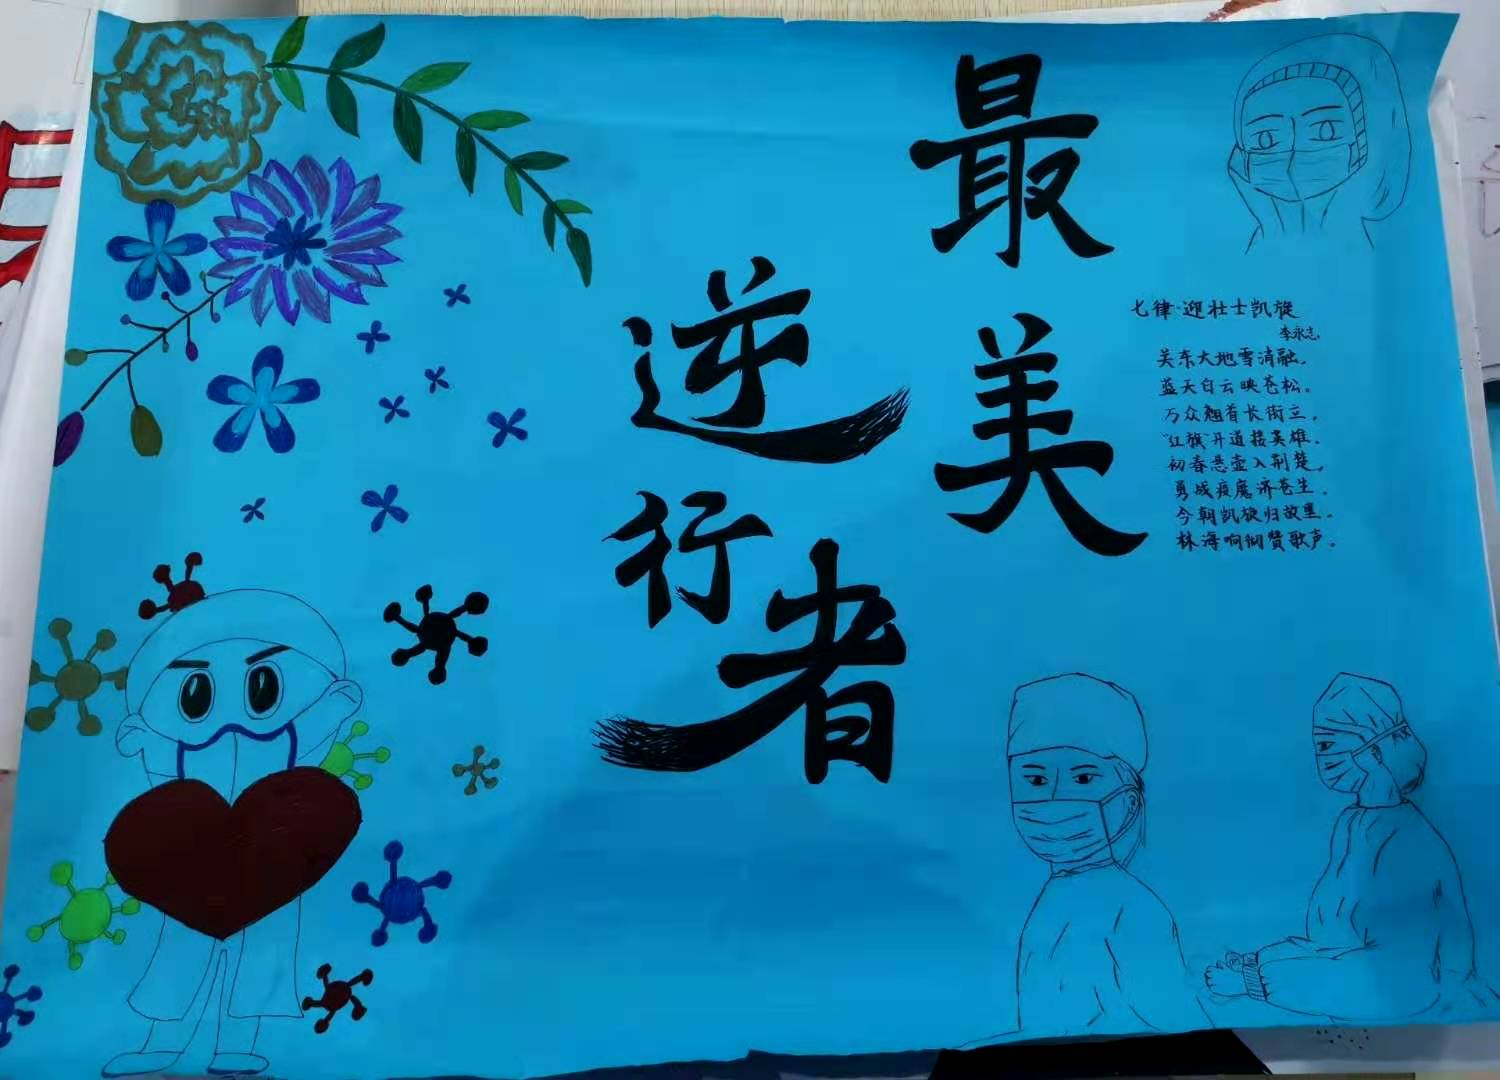 最美
逆行者
七律·迎壮士凯旋
李永志
关东大地雪消融。
蓝天白云映苍松。
万众翘首长街立。
"红旗"开道接英雄。
初春悬壶入荆楚。
勇战疫魔济苍生。
今朝凯旋归故里。
林海响彻赞歌声。